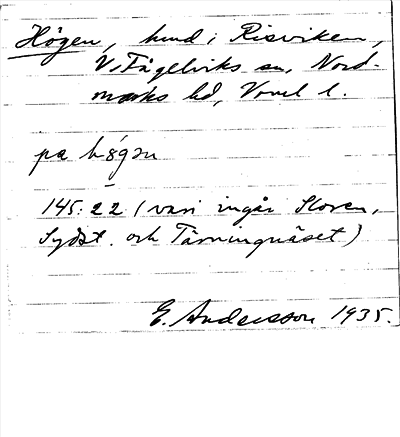 Högen, hmd i Risviken,
V. Fågelviks sn, Nord-
marks hd, Vrml l.
pa högən
145:22 (vari ingår Storen,
Sydst. och Tärningnäset)
E. Andersson 1935.